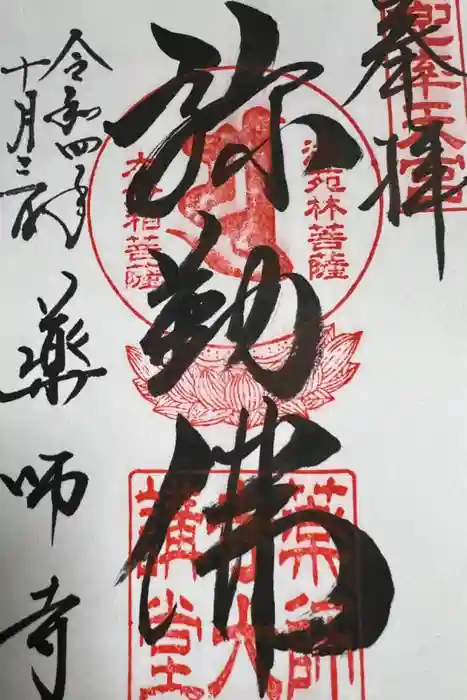 奉拝
兜率天宮
弥勒佛
法苑林菩薩
大妙相菩薩
薬師
寺大
講堂
令和四年
十月三日
薬師寺